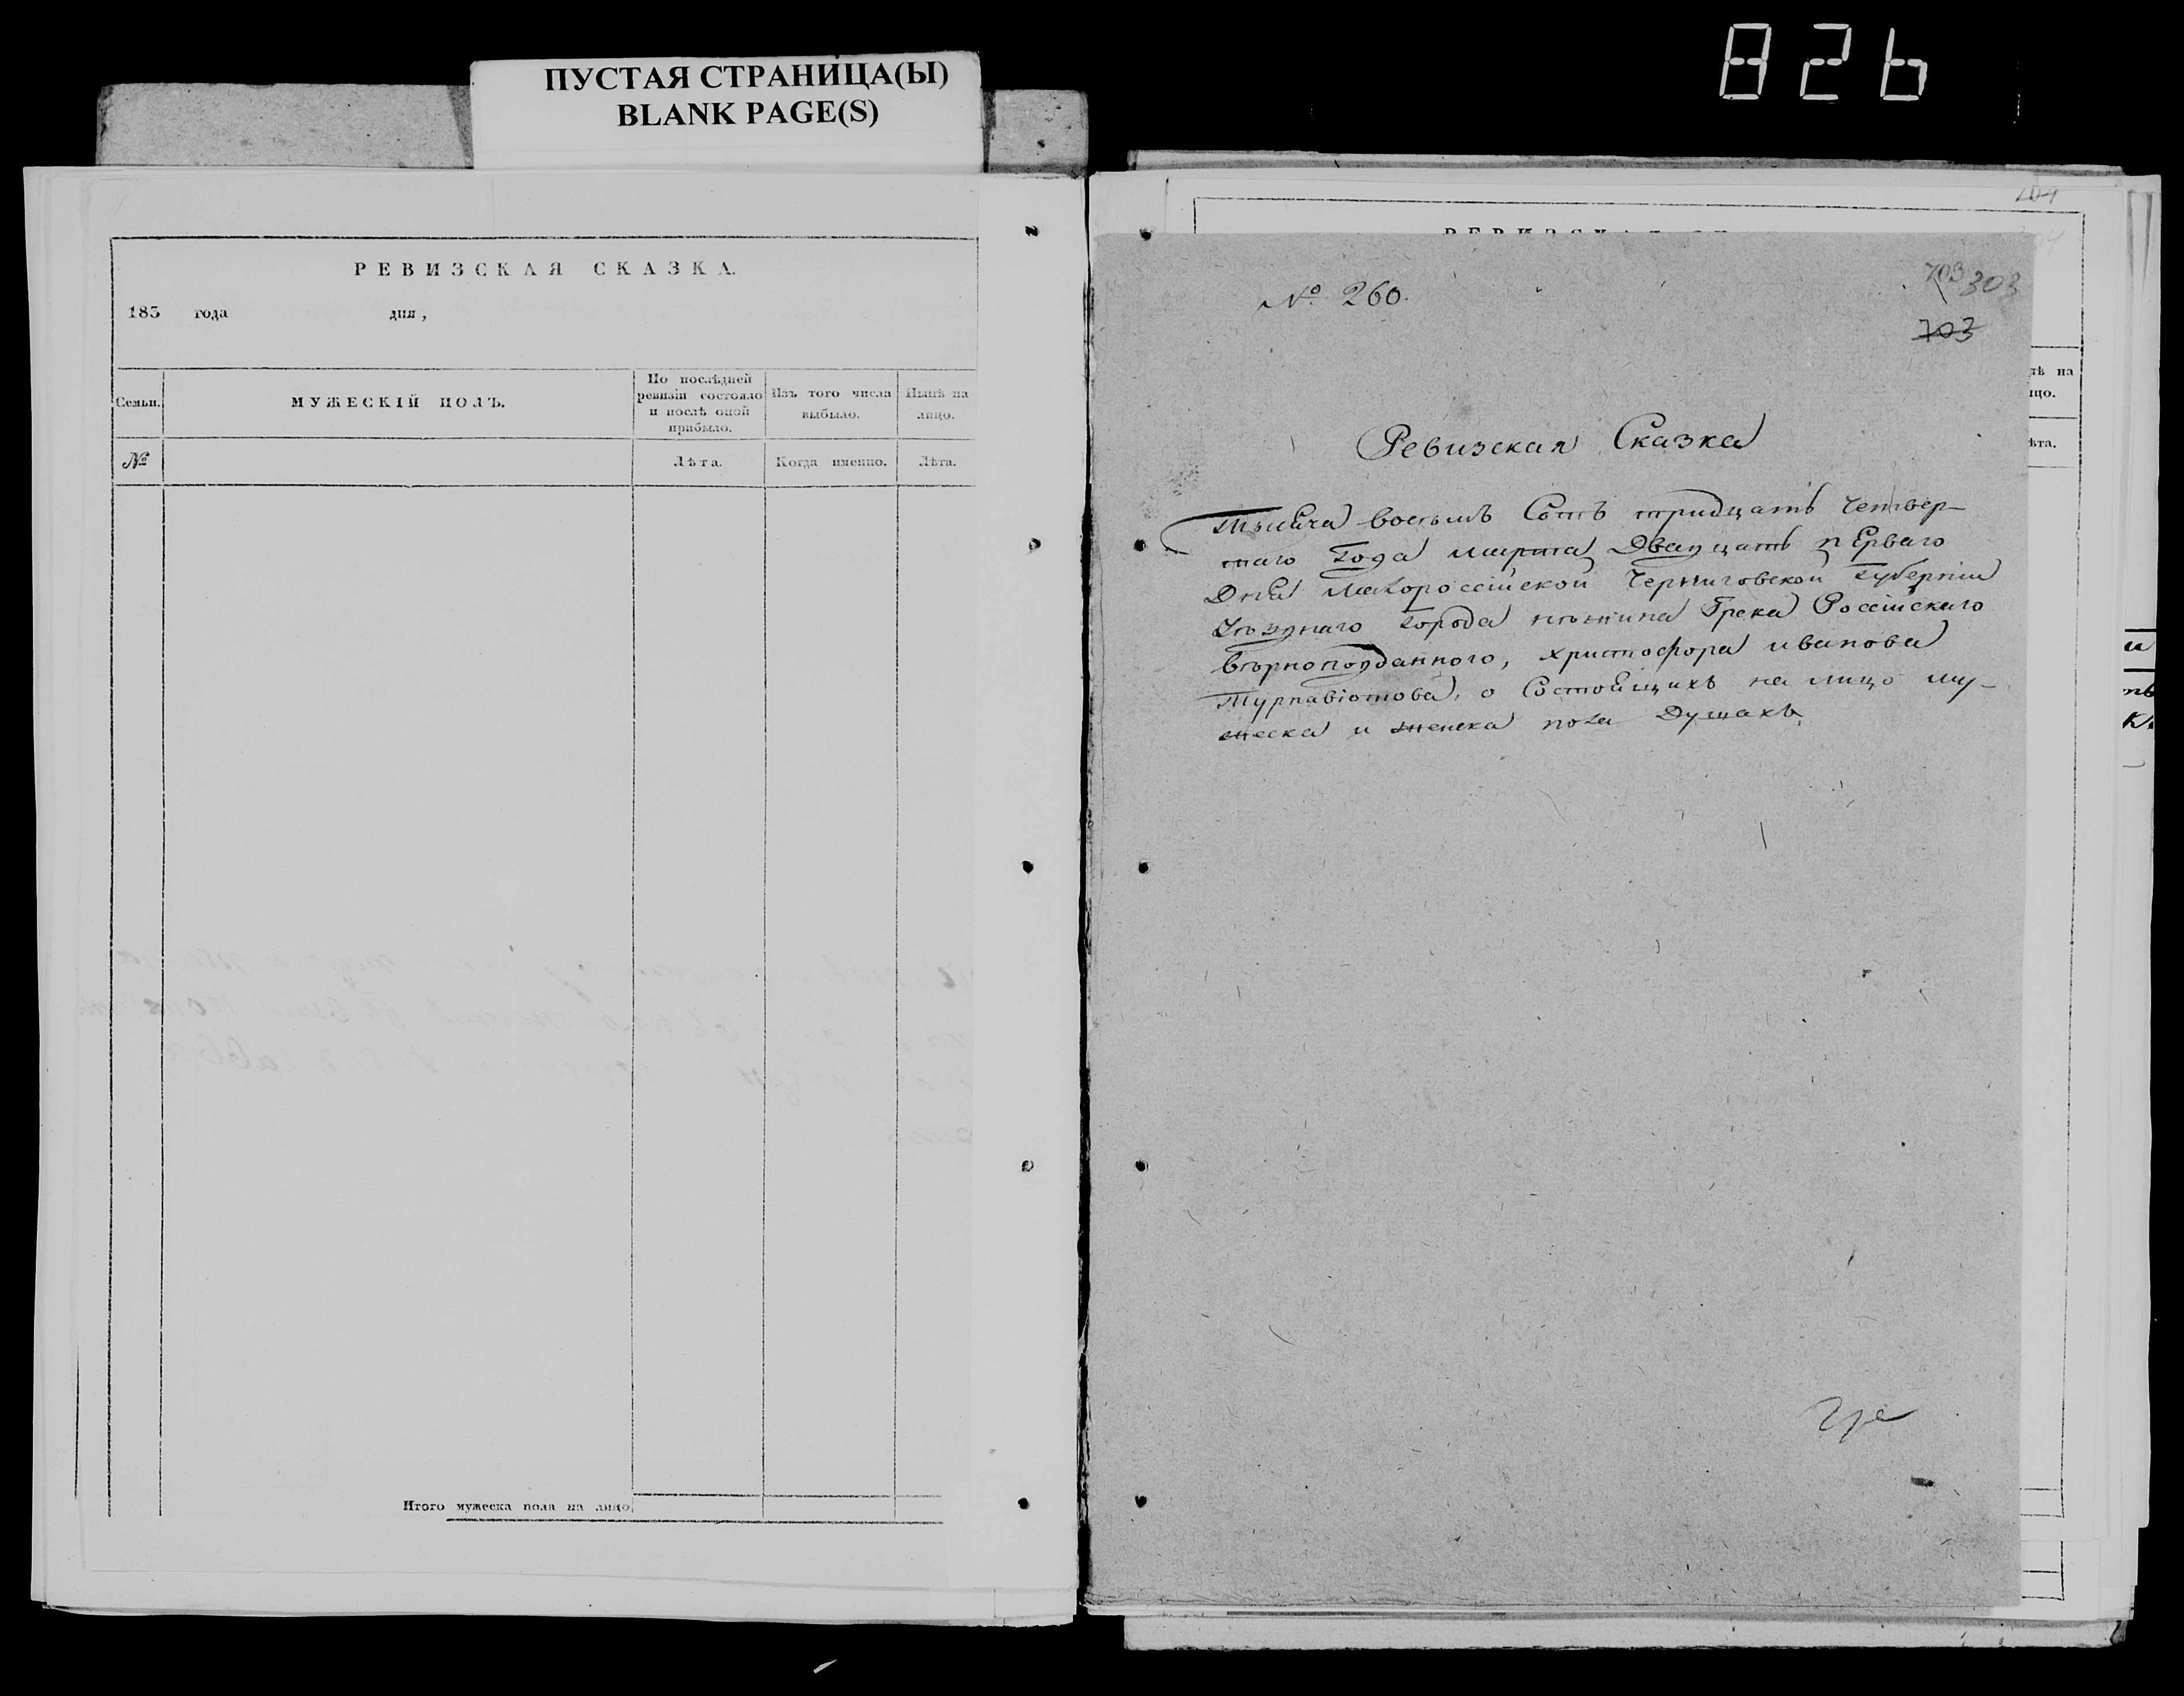 826
ПУСТАЯ СТРАНИЦА(Ы)
BLANK PAGE(S)
РЕВИЗСКАЯ СКАЗКА.
183 года дня,
Семьи.
МУЖЕСКІЙ ПОЛЪ.
По послѣдней ревизіи состояло и послѣ оной прибыло.
Изъ того числа выбыло.
Нынѣ на лицо.
№
Лѣта.
Когда именно.
Лѣта.
Итого мужеска пола на лицо
204
№ 260.
703 303
703
Ревизская Сказка
Тысяча восемь Сотъ тридцать Четвер-
таго Года марта Двадцать пЕрваго
Дня малороссійской Черниговской губерніи
Уѣзднаго города нѣжина Грека Россійскаго
вѣрноподданного, христофора иванова
Турнавіотова, о Состоящихъ на лицо му-
жеска и женска пола Душахъ
на
цо.
ѣта.